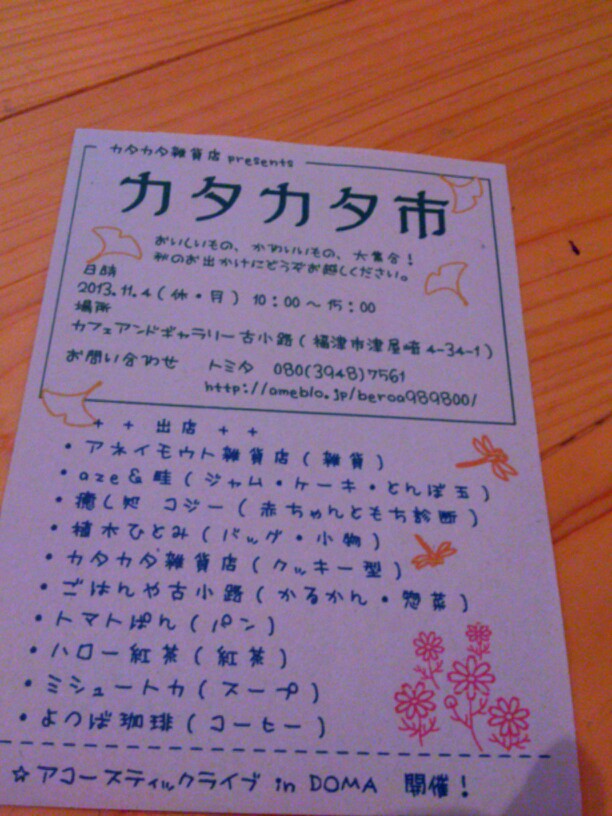 カタカタ雑貨店 presents
カタカタ市
おいしいもの、かわいいもの、大集合!
秋のお出かけにどうぞお越しください。
日時
2013.11.4(休・月) 10:00〜15:00
場所
カフェアンドギャラリー古小路(福津市津屋崎4-34-1)
お問い合わせ トミタ 080(3948)7561
http://ameblo.jp/beroa989800/
+ + 出店 + +
・アネイモウト雑貨店(雑貨)
・aze&畦(ジャム・ケーキ・とんぼ玉)
・癒し処 コジー(赤ちゃんともち診断)
・植木ひとみ(バッグ・小物)
・カタカタ雑貨店(クッキー型)
・ごはんや古小路(かるかん・惣菜)
・トマトぱん(パン)
・ハロー紅茶(紅茶)
・ミシュートカ(スープ)
・よつば珈琲(コーヒー)
☆アコースティックライブ in DOMA 開催!